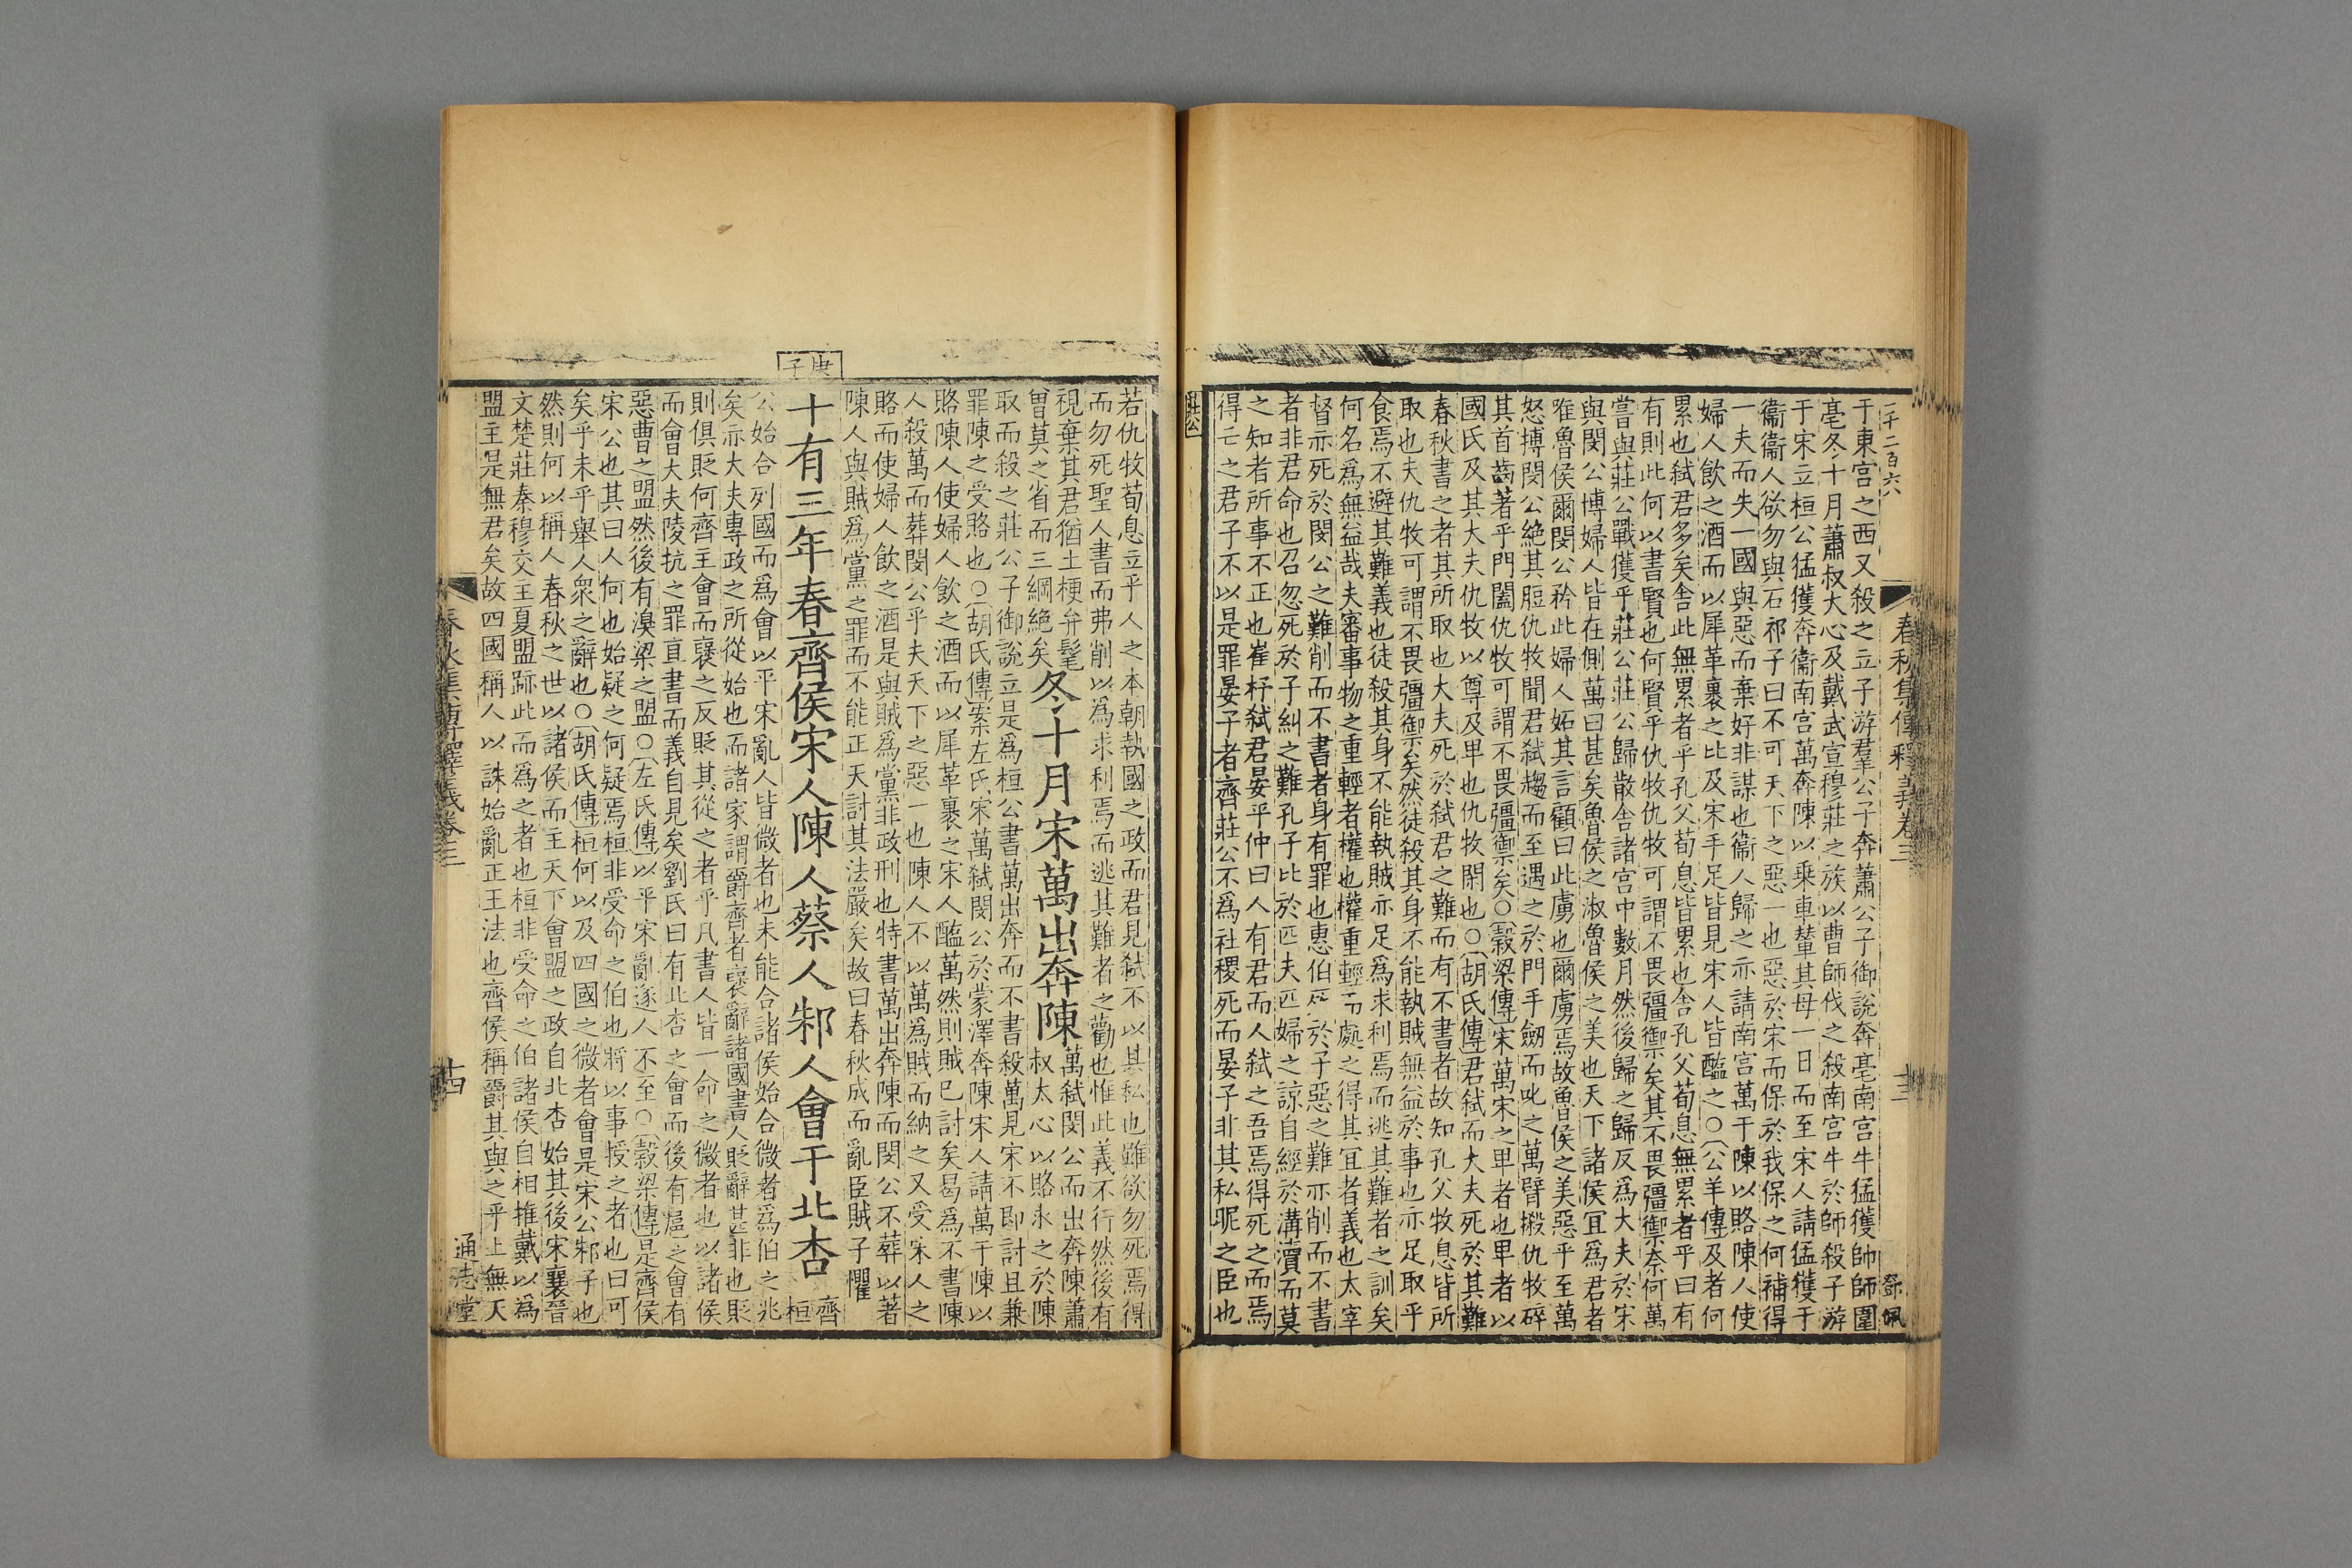 二千二百六
春秋集傳釋義卷三
十三
鄧佩
于東宮之西又殺之立子游羣公子奔蕭公子御說奔亳南宮牛猛獲帥師圍
亳冬十月蕭叔大心及戴武宣穆莊之族以曹師伐之殺南宮牛於師殺子游
于宋立桓公猛獲奔衞南宮萬奔陳以乗車輦其母一日而至宋人請猛獲于
衞衞人欲勿與石祁子曰不可天下之惡一也惡於宋而保於我保之何補得
一夫而失一國與惡而棄好非謀也衞人歸之亦請南宮萬于陳以賂陳人使
婦人飲之酒而以犀革裹之比及宋手足皆見宋人皆醢之○公羊傳及者何
累也弑君多矣舍此無累者乎孔父荀息皆累也舍孔父荀息無累者乎曰有
有則此何以書賢也何賢乎仇牧仇牧可謂不畏彊禦矣其不畏彊禦奈何萬
嘗與莊公戰獲乎莊公莊公歸散舍諸宮中數月然後歸之歸反爲大夫於宋
與閔公博婦人皆在側萬曰甚矣魯侯之淑魯侯之美也天下諸侯宜爲君者
唯魯侯爾閔公矜此婦人妬其言顧曰此虜也爾虜焉故魯侯之美惡乎至萬
怒搏閔公絶其脰仇牧聞君弑趨而至遇之於門手劒而叱之萬臂摋仇牧碎
其首齒著乎門闔仇牧可謂不畏彊禦矣○穀梁傳宋萬宋之卑者也卑者以
國氏及其大夫仇牧以尊及卑也仇牧閑也○胡氏傳君弑而大夫死於其難
春秋書之者其所取也大夫死於弑君之難而有不書者故知孔父牧息皆所
取也夫仇牧可謂不畏彊禦矣然徒殺其身不能執賊無益於事也亦足取乎
食焉不避其難義也徒殺其身不能執賊亦足爲求利焉而逃其難者之訓矣
何名爲無益哉夫審事物之重輕者權也權重輕而處之得其宜者義也太宰
督亦死於閔公之難削而不書者身有罪也惠伯死於子惡之難亦削而不書
者非君命也召忽死於子糾之難孔子比於匹夫匹婦之諒自經於溝瀆而莫
之知者所事不正也崔杼弑君晏平仲曰人有君而人弑之吾焉得死之而焉
得亡之君子不以是罪晏子者齊莊公不爲社稷死而晏子非其私昵之臣也
莊公
若仇牧荀息立乎人之本朝執國之政而君見弑不以其私也雖欲勿死焉得
而勿死聖人書而弗削以爲求利焉而逃其難者之勸也惟此義不行然後有
視棄其君猶土梗弁髦冬十月宋萬出奔陳萬弑閔公而出奔陳蕭
曾莫之省而三綱絶矣叔太心以賂求之於陳
取而殺之莊公子御說立是爲桓公書萬出奔而不書殺萬見宋不即討且兼
罪陳之受賂也○胡氏傳案左氏宋萬弑閔公於蒙澤奔陳宋人請萬于陳以
賂陳人使婦人飲之酒而以犀革裹之宋人醢萬然則賊已討矣曷爲不書陳
人殺萬而葬閔公乎夫天下之惡一也陳人不以萬爲賊而納之又受宋人之
賂而使婦人飲之酒是與賊爲黨非政刑也特書萬出奔陳而閔公不葬以著
陳人與賊爲黨之罪而不能正天討其法嚴矣故曰春秋成而亂臣賊子懼
庚子
十有三年春齊侯宋人陳人蔡人邾人會于北杏齊桓
公始合列國而爲會以平宋亂人皆微者也未能合諸侯始合微者爲伯之兆
矣亦大夫專政之所從始也而諸家謂爵齊者襃辭諸國書人貶辭甚非也貶
則俱貶何齊主會而襃之反貶其從之者乎凡書人皆一命之微者也以諸侯
而會大夫陵抗之罪直書而義自見矣劉氏曰有北杏之會而後有扈之會有
惡曹之盟然後有湨梁之盟○左氏傳以平宋亂遂人不至○穀梁傳是齊侯
宋公也其曰人何也始疑之何疑焉桓非受命之伯也將以事授之者也曰可
矣乎未乎舉人衆之辭也○胡氏傳桓何以及四國之微者會是宋公邾子也
然則何以稱人春秋之世以諸侯而主天下會盟之政自北杏始其後宋襄晉
文楚莊秦穆交主夏盟跡此而爲之者也桓非受命之伯諸侯自相推戴以爲
盟主是無君矣故四國稱人以誅始亂正王法也齊侯稱爵其與之乎上無天
春秋集傳釋義卷三
十四
通志堂